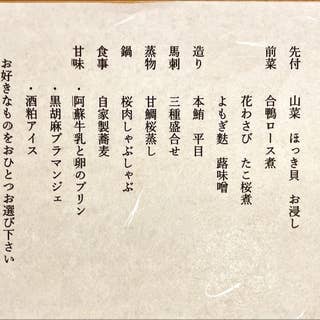 先付　山菜　ほっき貝　お浸し
前菜　合鴨ロース煮
花わさび　たこ桜煮
よもぎ麩　蕗味噌
造り　本鮪　平目
馬刺　三種盛合せ
蒸物　甘鯛桜蒸し
鍋　桜肉しゃぶしゃぶ
食事　自家製蕎麦
甘味　・阿蘇牛乳と卵のプリン
・黒胡麻ブラマンジェ
・酒粕アイス
お好きなものをおひとつお選び下さい